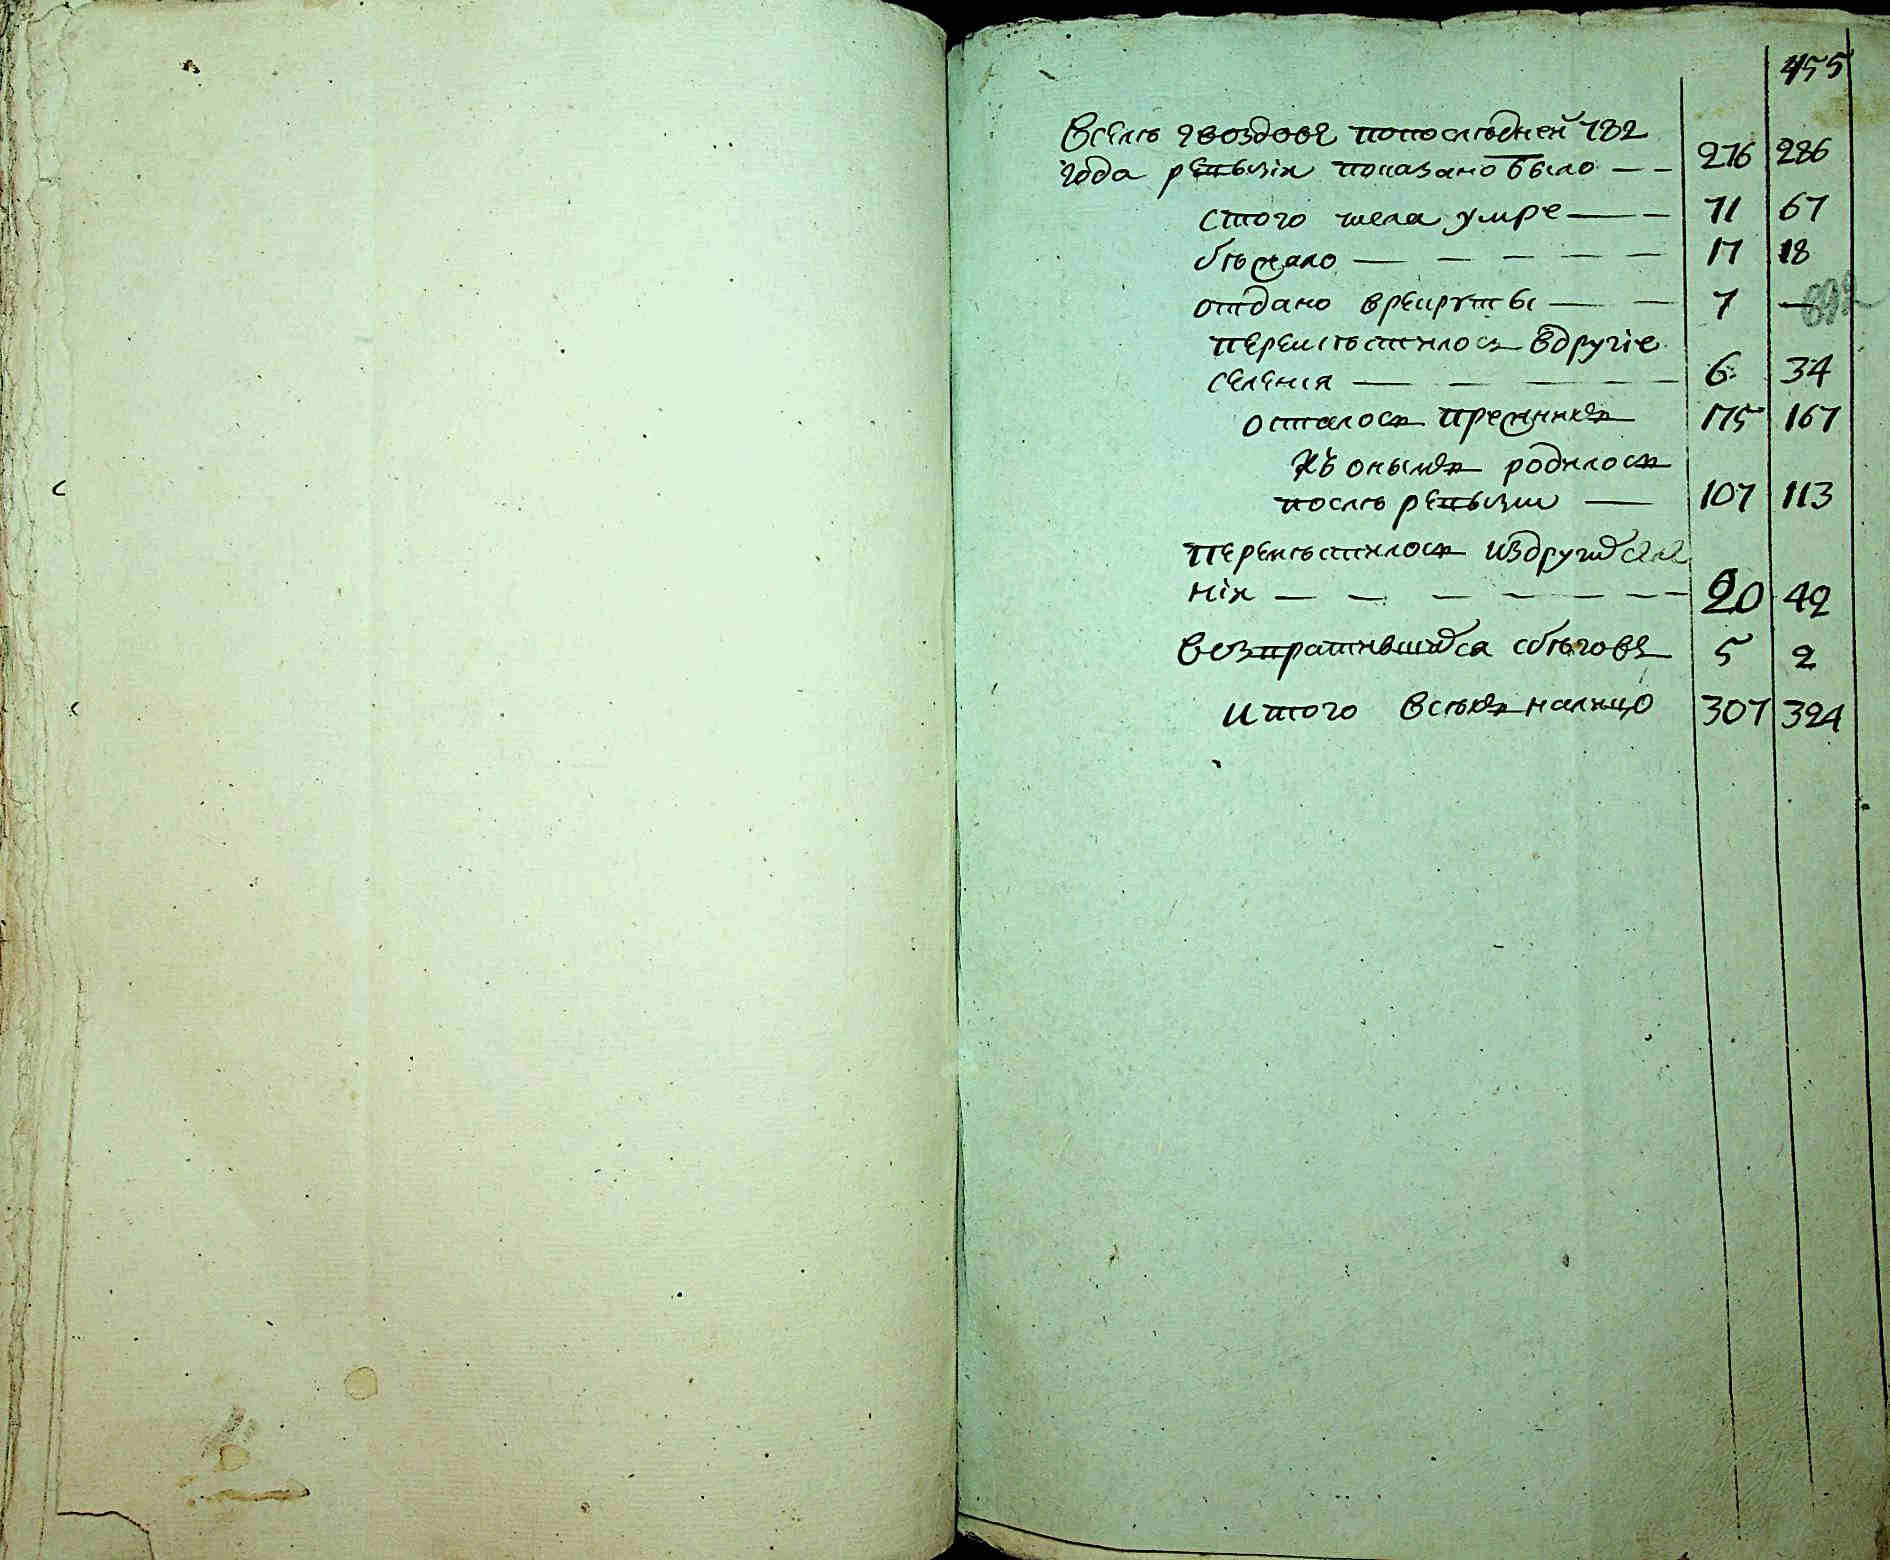 455
Вселѣ гвоздовъ попослѣдней 782
года ревызіи показано было — — 276 286
стого числа умре — — 71 67
бѣжало — — — — — 17 18
отдано врекруты — — 7 —
перемѣстилось вдругіе
селенія — — — — 6 34
осталось прежнихъ 175 167
Къ онымъ родилось
послѣ ревызіи — 107 113
перемѣстилось издругихъ селе
нія — — — — — — 20 42
возвратившихся сбѣговъ 5 2
Итого всѣхъ налицо 307 324